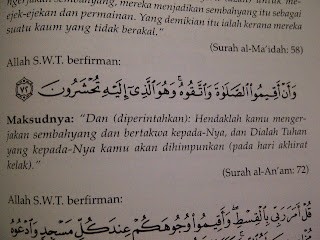 ngerjakan sembahyang, mereka menjadikan sembahyang itu sebagai
ejek-ejekan dan permainan. Yang demikian itu ialah kerana mereka
suatu kaum yang tidak berakal.”
(Surah al-Ma'idah: 58)
Allah S.W.T. berfirman:
وَأَنْ أَقِيمُوا۟ ٱلصَّلَوٰةَ وَٱتَّقُوهُ ۚ وَهُوَ ٱلَّذِىٓ إِلَيْهِ تُحْشَرُونَ ٧٢
Maksudnya: “Dan (diperintahkan): Hendaklah kamu menger-
jakan sembahyang dan bertakwa kepada-Nya, dan Dialah Tuhan
yang kepada-Nya kamu akan dihimpunkan (pada hari akhirat
kelak).”
(Surah al-An'am: 72)
Allah S.W.T. berfirman:
قُلْ أَمَرَ رَبِّى بِٱلْقِسْطِ ۖ وَأَقِيمُوا۟ وُجُوهَكُمْ عِندَ كُلِّ مَسْجِدٍ وَٱدْعُوهُ